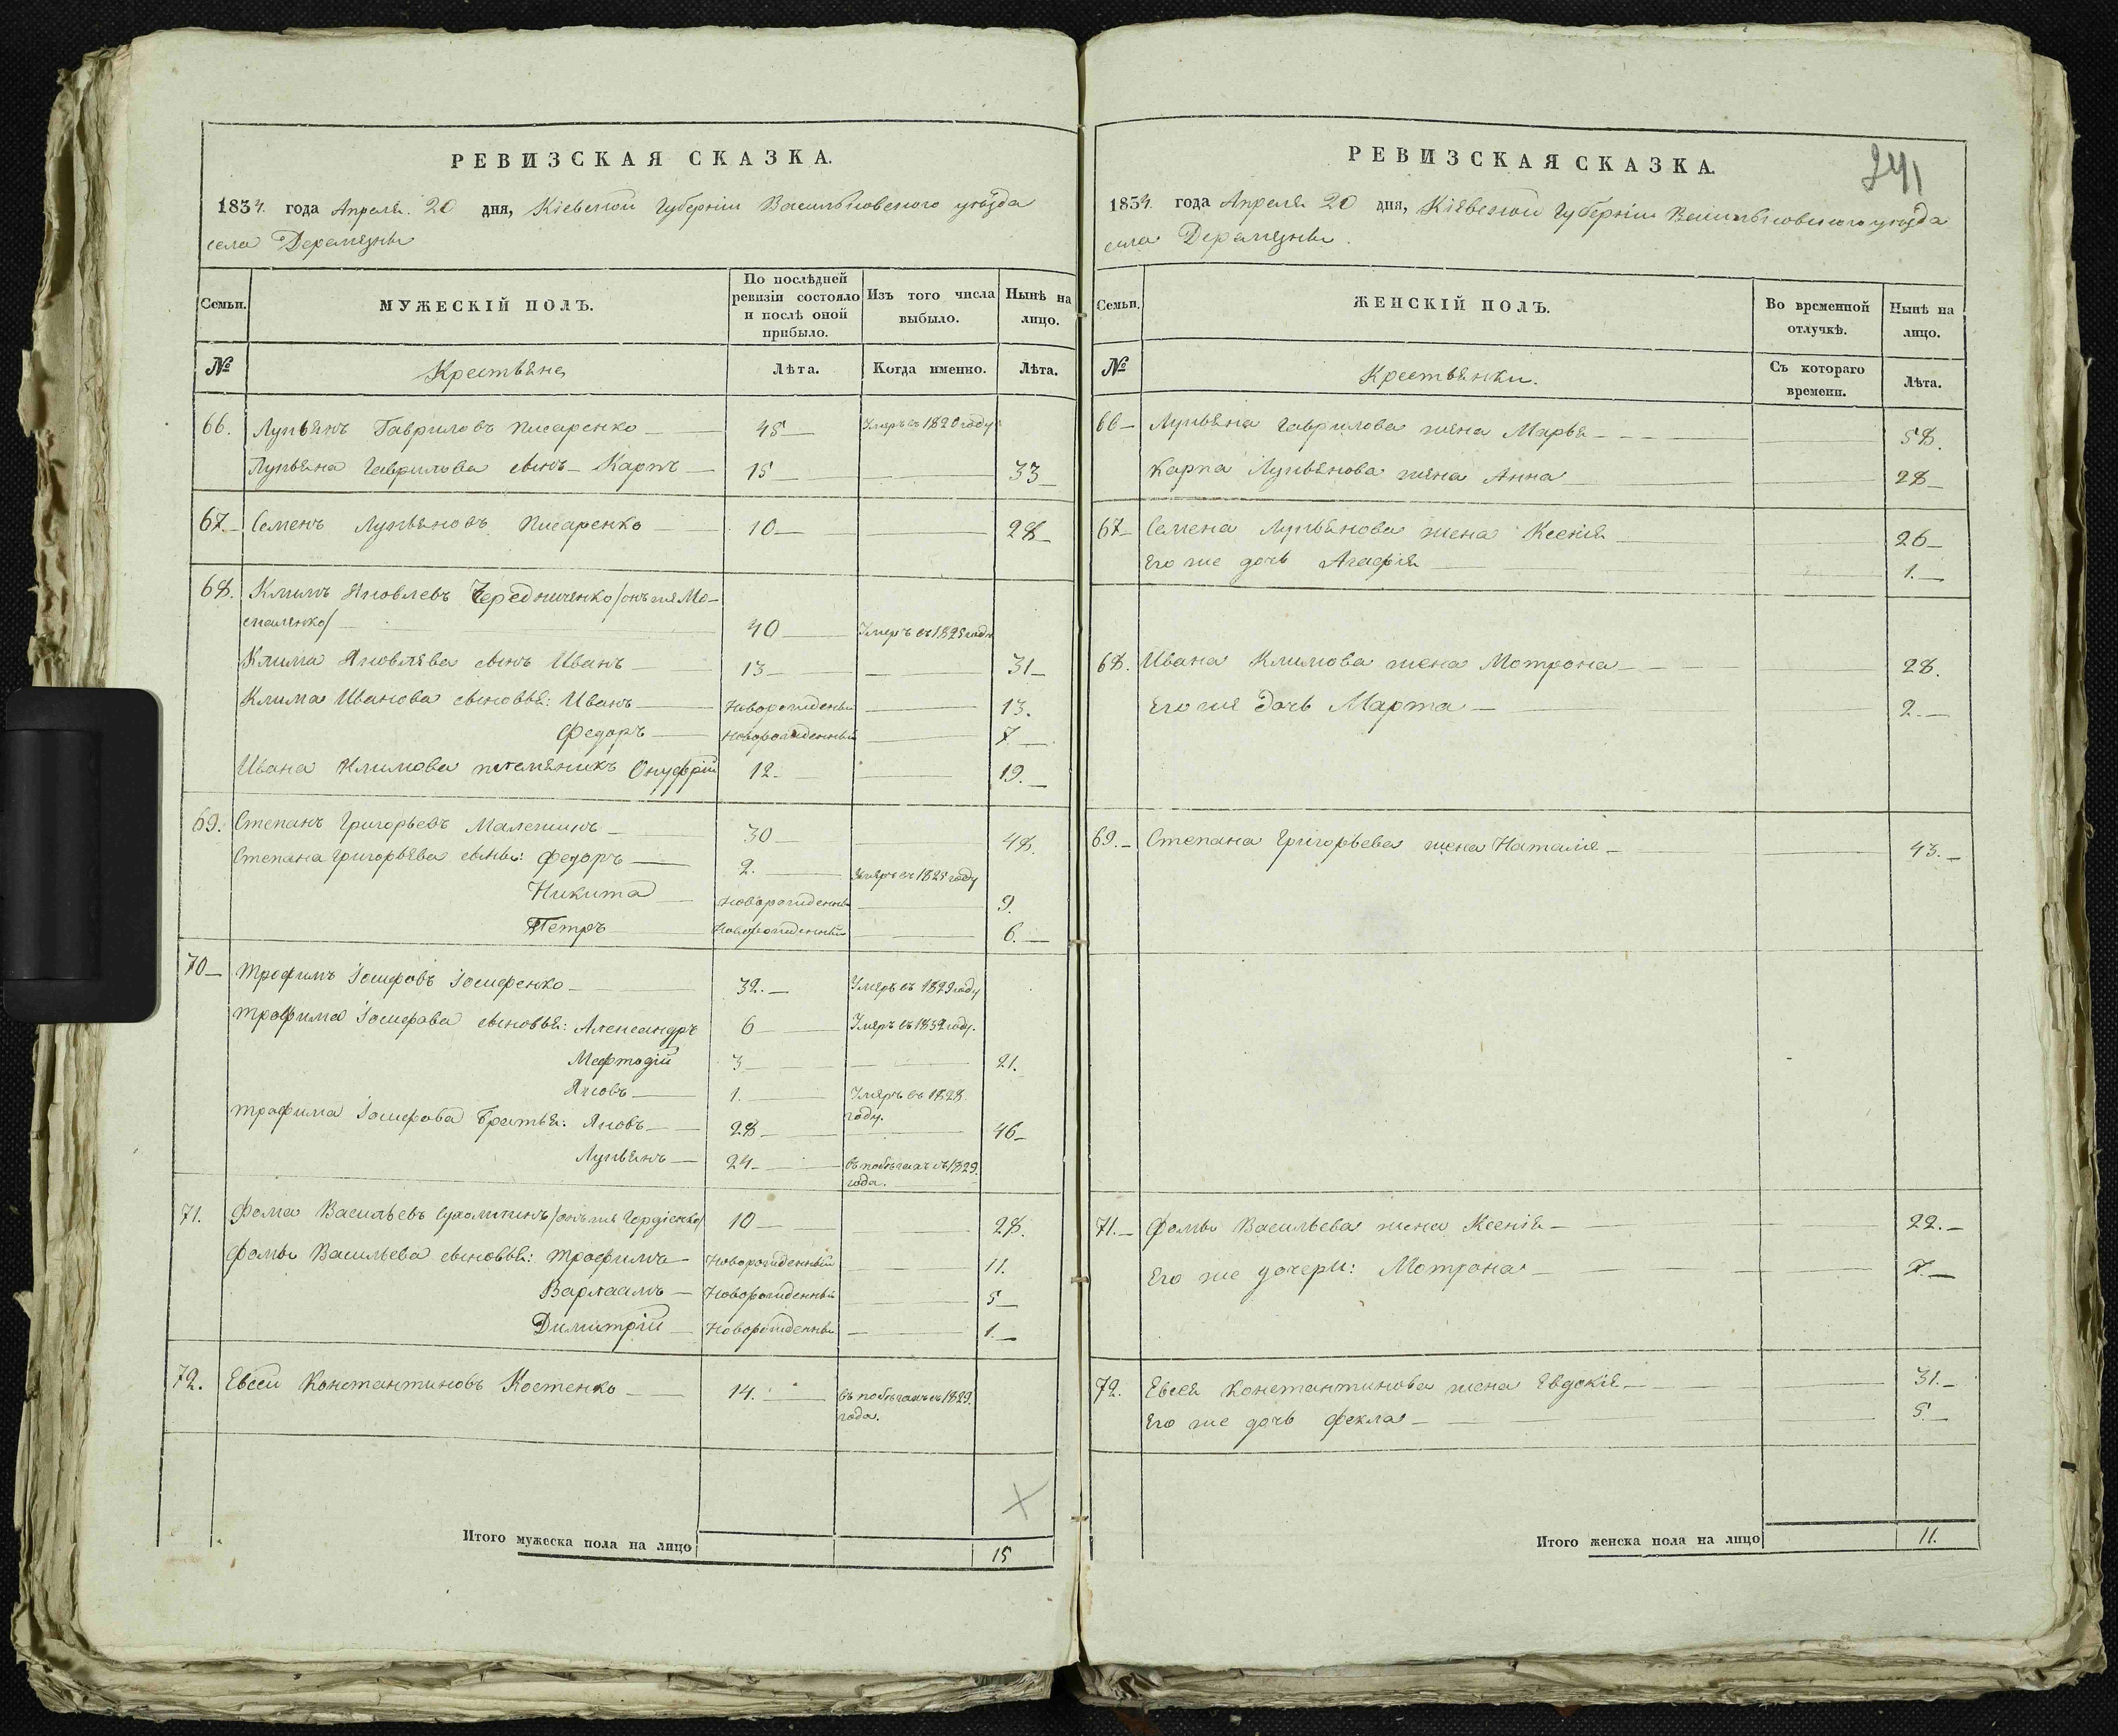 РЕВИЗСКАЯ СКАЗКА.
1834. года Апреля. 20 дня, Кіевской Губерніи Васильковского уѣзда
села Деремезны
Семьи. МУЖЕСКІЙ ПОЛЪ. По послѣдней ревизіи состояло и послѣ оной прибыло. Изъ того числа выбыло. Нынѣ на лицо.
№ Крестьяне Лѣта. Когда именно. Лѣта.
66. Лукьянъ Гавриловъ Писаренко 45 Умеръ въ 1820 году
Лукьяна Гаврилова сынъ Карпъ 15 33
67. Семенъ Лукьяновъ Писаренко 10 28
68. Климъ Яковлевъ Чередниченко /онъ же Мо-
скаленко/ 40 Умеръ въ 1825 году
Клима Яковлева сынъ Иванъ 13 31
Клима Иванова сыновья: Иванъ Новорожденный 13.
Федоръ Новорожденный 7.
Ивана Климова племяникъ Онуфрій 12. 19.
69. Степанъ Григорьевъ 30 48.
Степана Григорьева сыны: Федоръ 2. Умеръ въ 1825 году
Никита Новорожденный 9.
Петръ Новорожденный 6.
70 Трофимъ Іосифовъ Іосифенко 32. Умеръ въ 1829 году
Трофима Іосифова сыновья: Александръ 6 Умеръ въ 1832 году.
Мефтодій 3 21.
Яковъ 1. Умеръ въ 1828.
году.
Трофима Іосифова Братья: Яковъ 28 46
Лукьянъ 24 въ побѣгахъ съ 1829.
года.
71. Фома Васильевъ /онъ же Гордіенко/ 10 28.
Фомы Васильева сыновья: Трофимъ Новорожденный 11.
Варлаамъ Новорожденный 5
Димитрій Новорожденный 1.
72. Евсей Константиновъ Костенко 14. въ побѣгахъ съ 1829.
года.
Итого мужеска пола на лицо 15
РЕВИЗСКАЯ СКАЗКА.
241
1834. года Апреля 20 дня, Кіевской Губерніи Васильковского уѣзда
села Деремезны.
Семьи. ЖЕНСКІЙ ПОЛЪ. Во временной отлучкѣ. Нынѣ на лицо.
№ Крестьянки. Съ котораго времени. Лѣта.
66 Лукьяна Гаврилова жена Марья 58.
Карпа Лукьянова жена Анна 28
67 Семена Лукьянова жена Ксенія 26
Его же дочь Агафія 1.
68. Ивана Климова жена Мотрона 28.
Его же дочь Марта 2.
69. Степана Григорьева жена Наталія 43.
71. Фомы Васильева жена Ксенія 22.
Его же дочери: Мотрона 7.
72. Евсея Константинова жена Евдокія 31.
Его же дочь Фекла 5.
Итого женска пола на лицо 11.